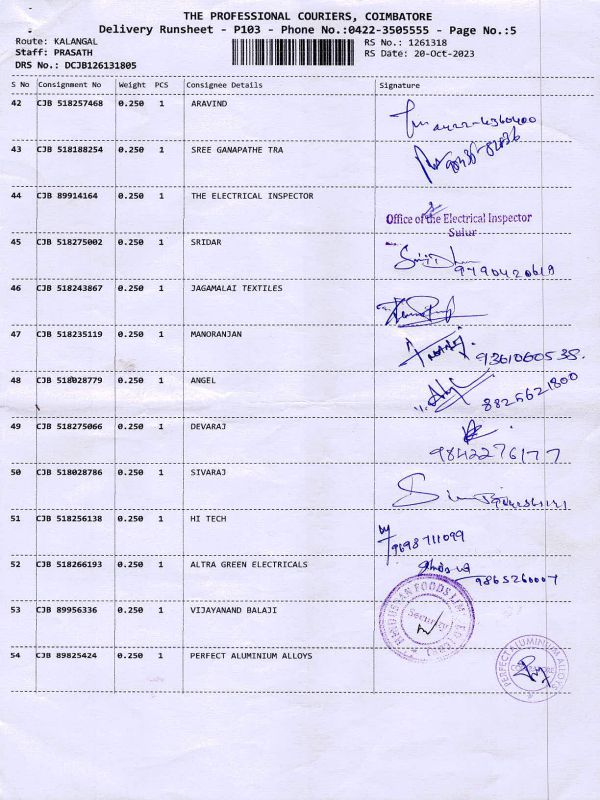 THE PROFESSIONAL COURIERS, COIMBATORE
Delivery Runsheet - P103 - Phone No.:0422-3505555 - Page No.:5
Route: KALANGAL RS No.: 1261318
Staff: PRASATH RS Date: 20-Oct-2023
DRS No.: DCJB126131805
S No Consignment No Weight PCS Consignee Details Signature
42 CJB 518257468 0.250 1 ARAVIND
43 CJB 518188254 0.250 1 SREE GANAPATHE TRA
44 CJB 89914164 0.250 1 THE ELECTRICAL INSPECTOR
Office of the Electrical Inspector
Sulur
45 CJB 518275002 0.250 1 SRIDAR
9790420619
46 CJB 518243867 0.250 1 JAGAMALAI TEXTILES
47 CJB 518235119 0.250 1 MANORANJAN
9361060538.
48 CJB 518028779 0.250 1 ANGEL
8825621800
49 CJB 518275066 0.250 1 DEVARAJ
9842276177
50 CJB 518028786 0.250 1 SIVARAJ
51 CJB 518256138 0.250 1 HI TECH
9698711099
52 CJB 518266193 0.250 1 ALTRA GREEN ELECTRICALS
9865260007
53 CJB 89956336 0.250 1 VIJAYANAND BALAJI
HINDUSTAN FOODS LIMITED
Security
54 CJB 89825424 0.250 1 PERFECT ALUMINIUM ALLOYS
PERFECT ALUMINIUM ALLOYS